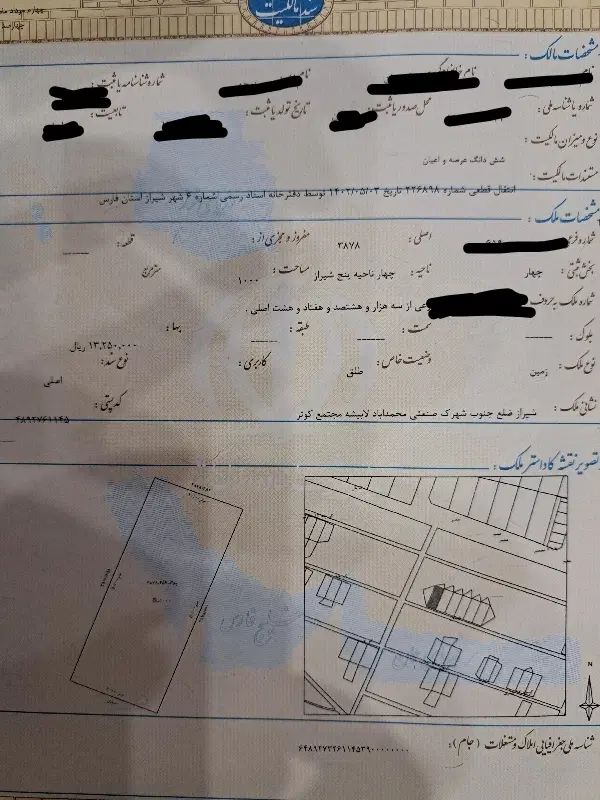 سند مالکیت
مشخصات مالک :
نام نام خانوادگی نام شماره شناسنامه یا ثبت :
شماره یا شناسه ملی : محل صدور یا ثبت : تاریخ تولد یا ثبت : تابعیت :
نوع و میزان مالکیت :
شش دانگ عرصه و اعیان
مستندات مالکیت :
انتقال قطعی شماره ۲۲۶۸۹۸ تاریخ ۱۴۰۲/۰۵/۰۳ توسط دفترخانه اسناد رسمی شماره ۶ شهر شیراز استان فارس
مشخصات ملک :
شماره فرعی اصلی : ۳۸۷۸ مفروز و مجزی از : قطعه : ------
بخش ثبتی : چهار ناحیه : چهار ناحیه پنج شیراز مساحت : ۱۰۰۰ مترمربع
شماره ملک به حروف عی از سه هزار و هشتصد و هفتاد و هشت اصلی .
بلوک : ------ سمت : ------ طبقه : ------ بها : ۱۳,۲۵۰,۰۰۰ ریال
نوع ملک : زمین وضعیت خاص : طلق کاربری : نوع سند : اصلی
نشانی ملک : شیراز ضلع جنوب شهرک صنعتی محمدآباد لابیشه مجتمع کوثر کدپستی : ۶۴۸۹۲۷۶۱۱۴۵
تصویر نقشه کاداستر ملک :
N
خلیج فارس
شناسه ملی جغرافیایی املاک و مستغلات ( جام ) : ۶۴۸۹۲۷۳۲۶۱۱۴۵۳۹۰۰۰۰۰۰۰۰۰